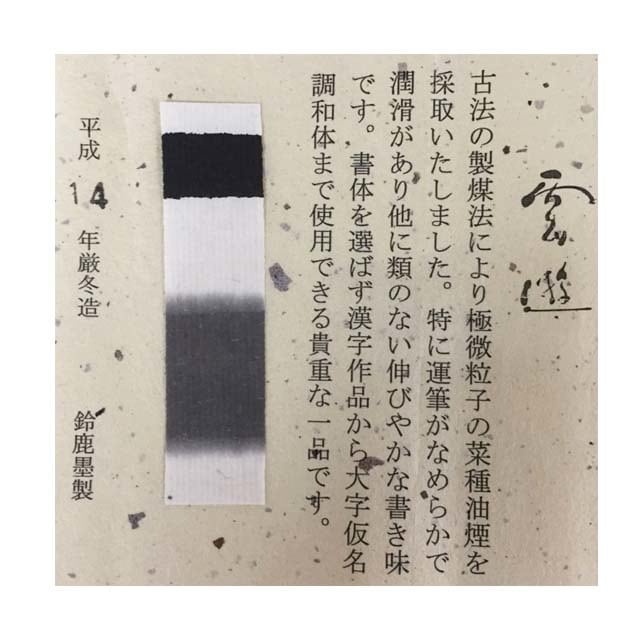 雲遊
古法の製煤法により極微粒子の菜種油煙を
採取いたしました。特に運筆がなめらかで
潤滑があり他に類のない伸びやかな書き味
です。書体を選ばず漢字作品から大字仮名
調和体まで使用できる貴重な一品です。
平成14年厳冬造 鈴鹿墨製